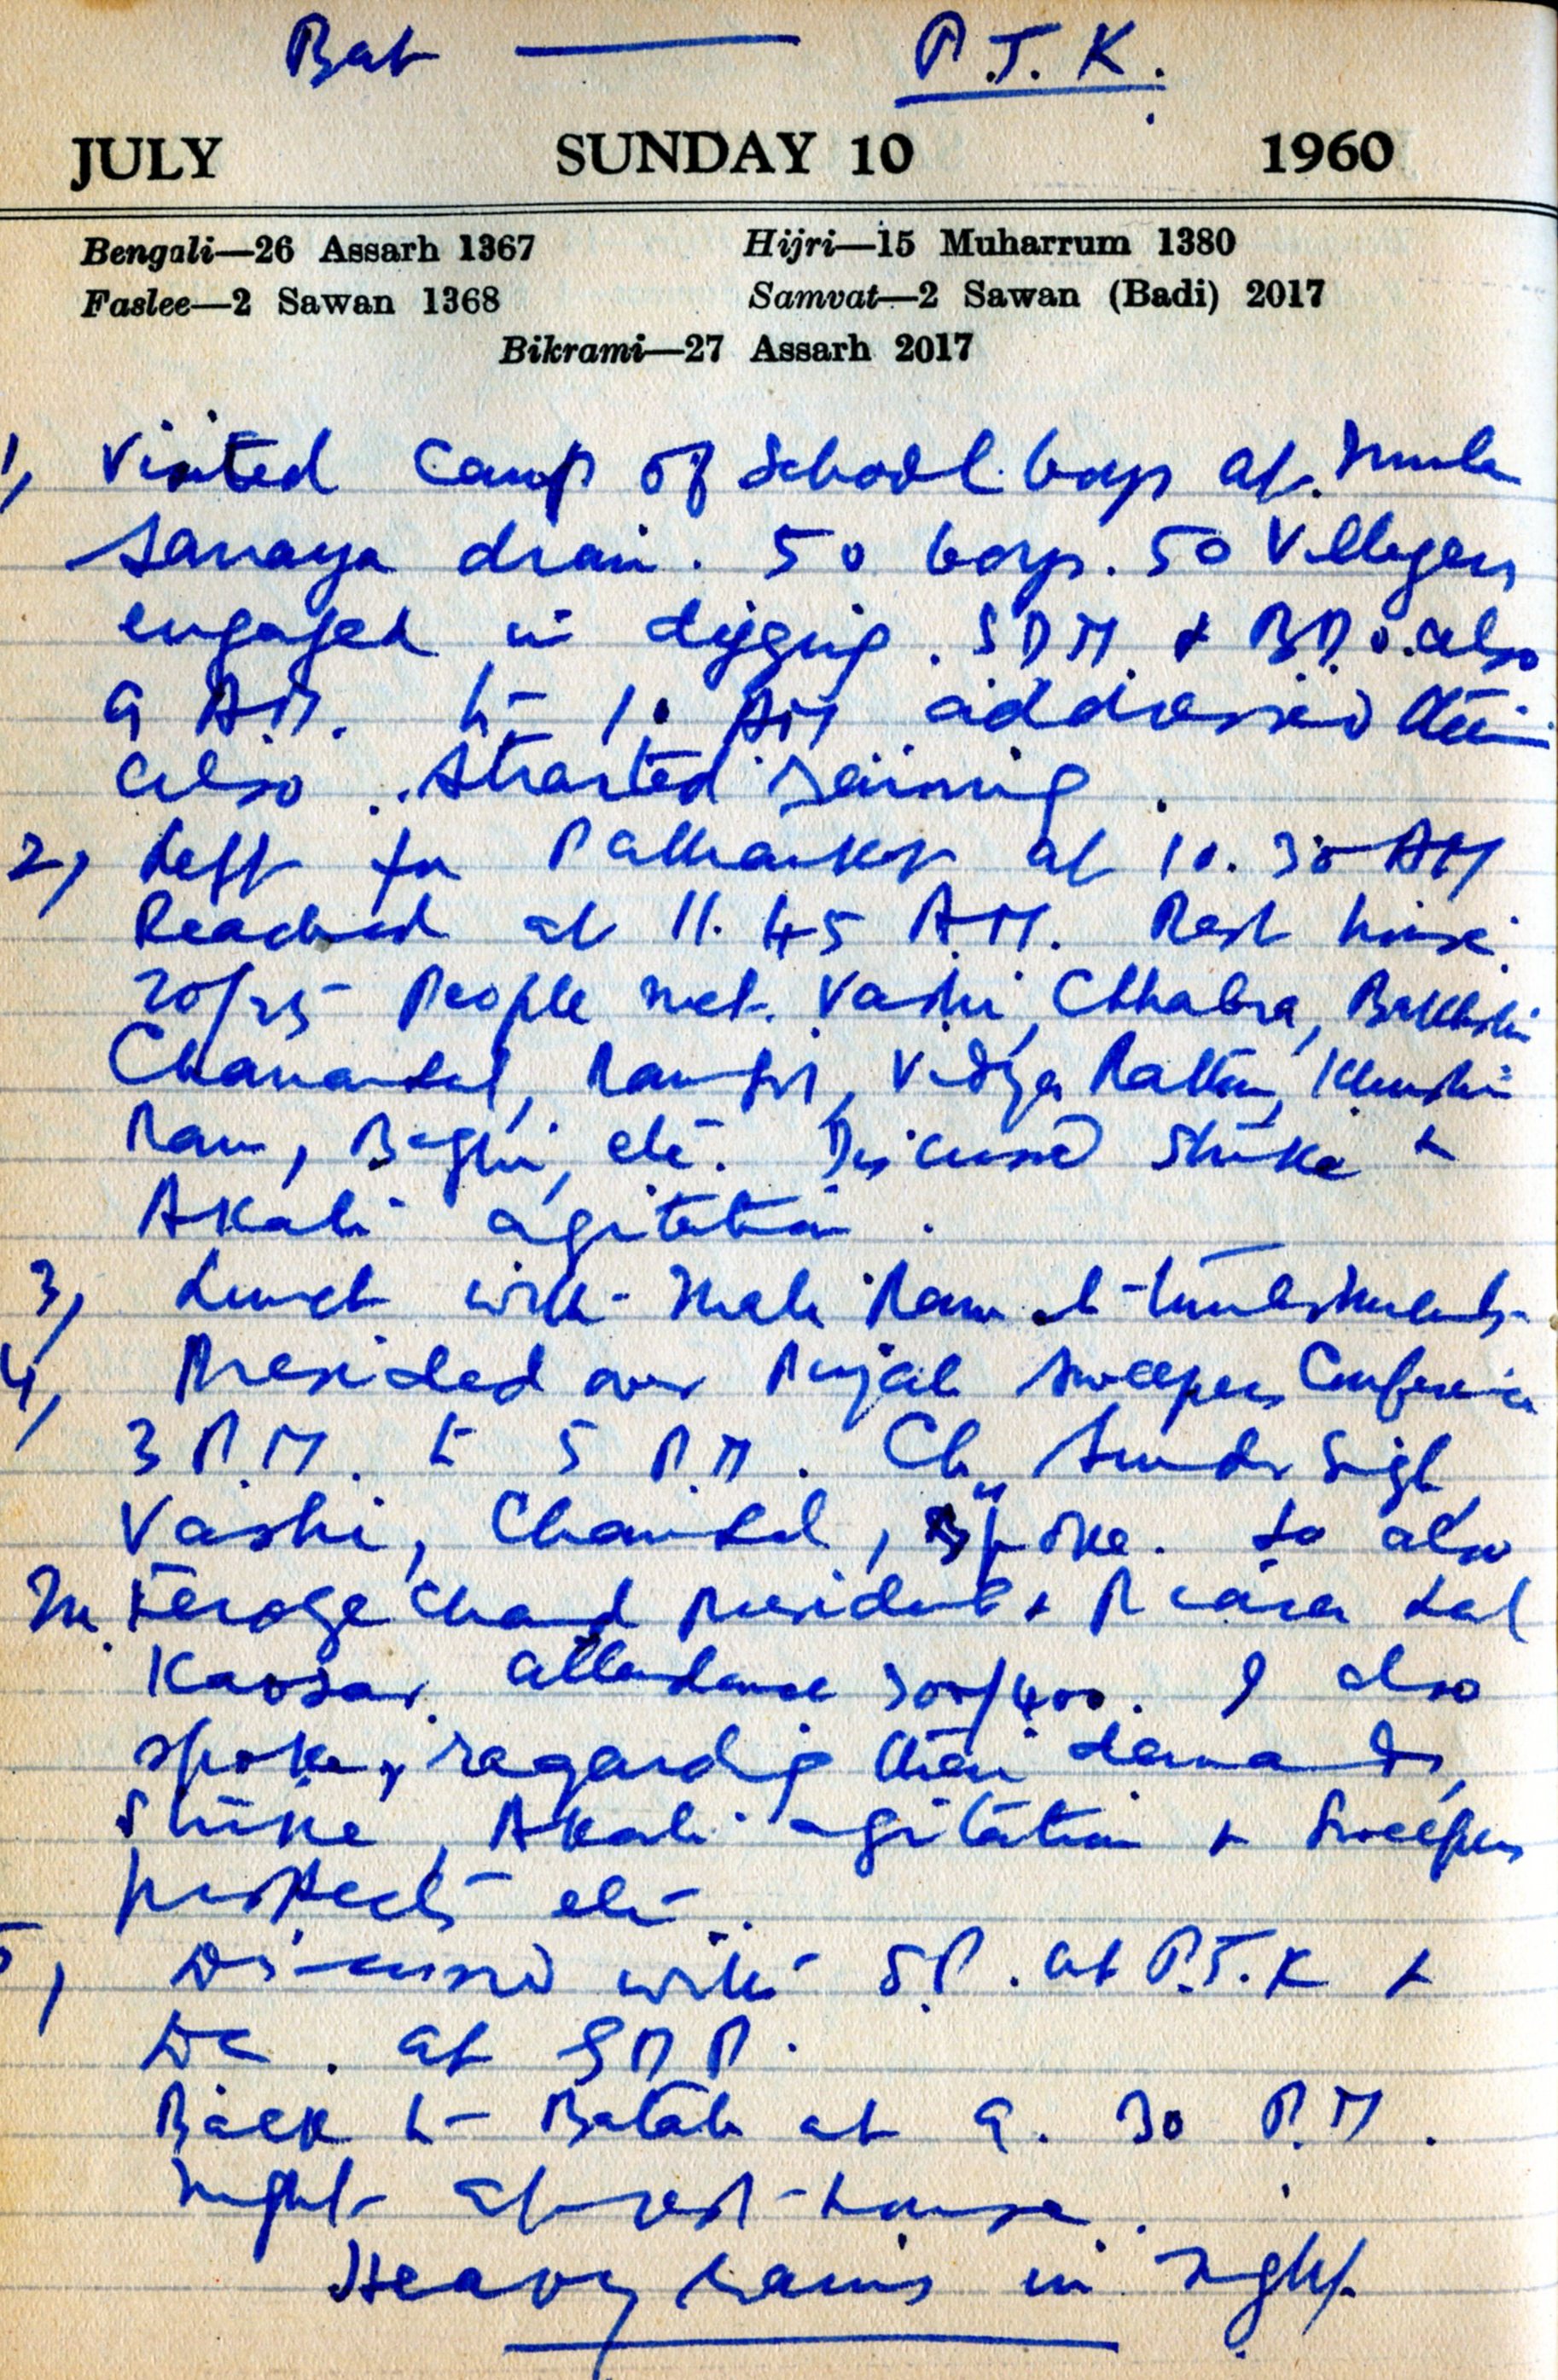 Bat — P.T.K.
JULY SUNDAY 10 1960
Bengali—26 Assarh 1367 Hijri—15 Muharrum 1380
Faslee—2 Sawan 1368 Samvat—2 Sawan (Badi) 2017
Bikrami—27 Assarh 2017
1, Visited Camp of School boys at
drain. 50 boys. 50 Villagers
engaged in digging. SDM & BDO. also
9 AM. to 10 AM addressed them
also. Strarted raining.
2, Left for Pathankot at 10.30 AM
Reached at 11.45 AM. Rest house.
20/25 People met. Vashi, Chhabra, Bakhshi
Chananlal, Vidya Rattan, Khushi
Ram, Baghi, etc. Discussed Strike &
Akali agitation.
3, Lunch with Ram at
4, Presided over Punjab Sweepers Conference
3 P.M. to 5 P.M. Ch. Sunder Singh
Vashi, Chananlal, spoke. so also
Feroze Chand President & Piara Lal
attendance 300/400. I also
spoke, regarding their demands,
Strike, Akali agitation & Sweepers
etc.
5, Discussed with S.P. at P.T.K &
DC. at GDP.
Back to Batala at 9.30 P.M.
Night at rest-house.
Heavy rains in night